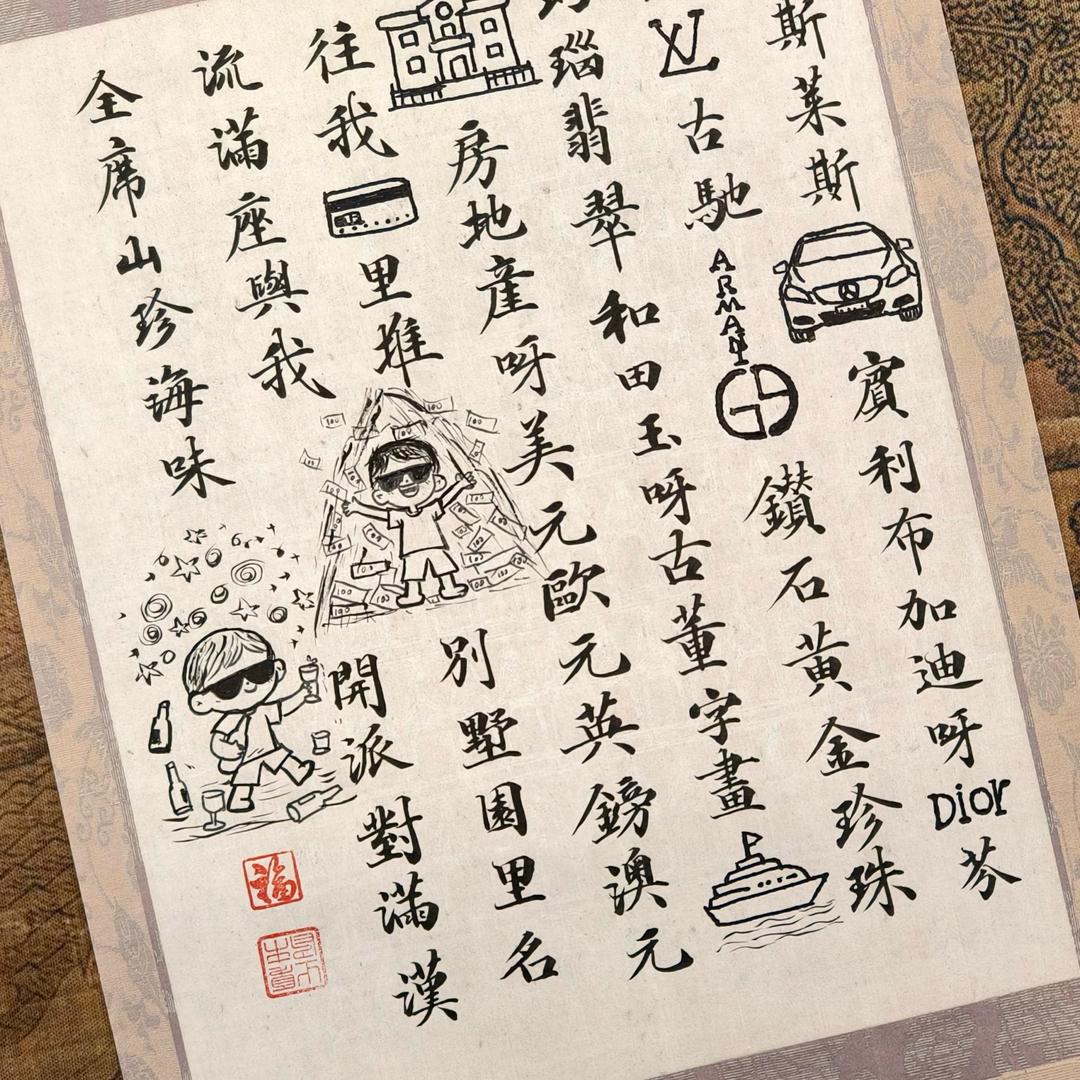 斯萊斯賓利布加迪呀Dior芬
LV古馳ARMANI鑽石黃金珍珠
瑙翡翠和田玉呀古董字畫
房地產呀美元歐元英鎊澳元
往我里堆別墅園里名
流滿座與我開派對滿漢
全席山珍海味
福